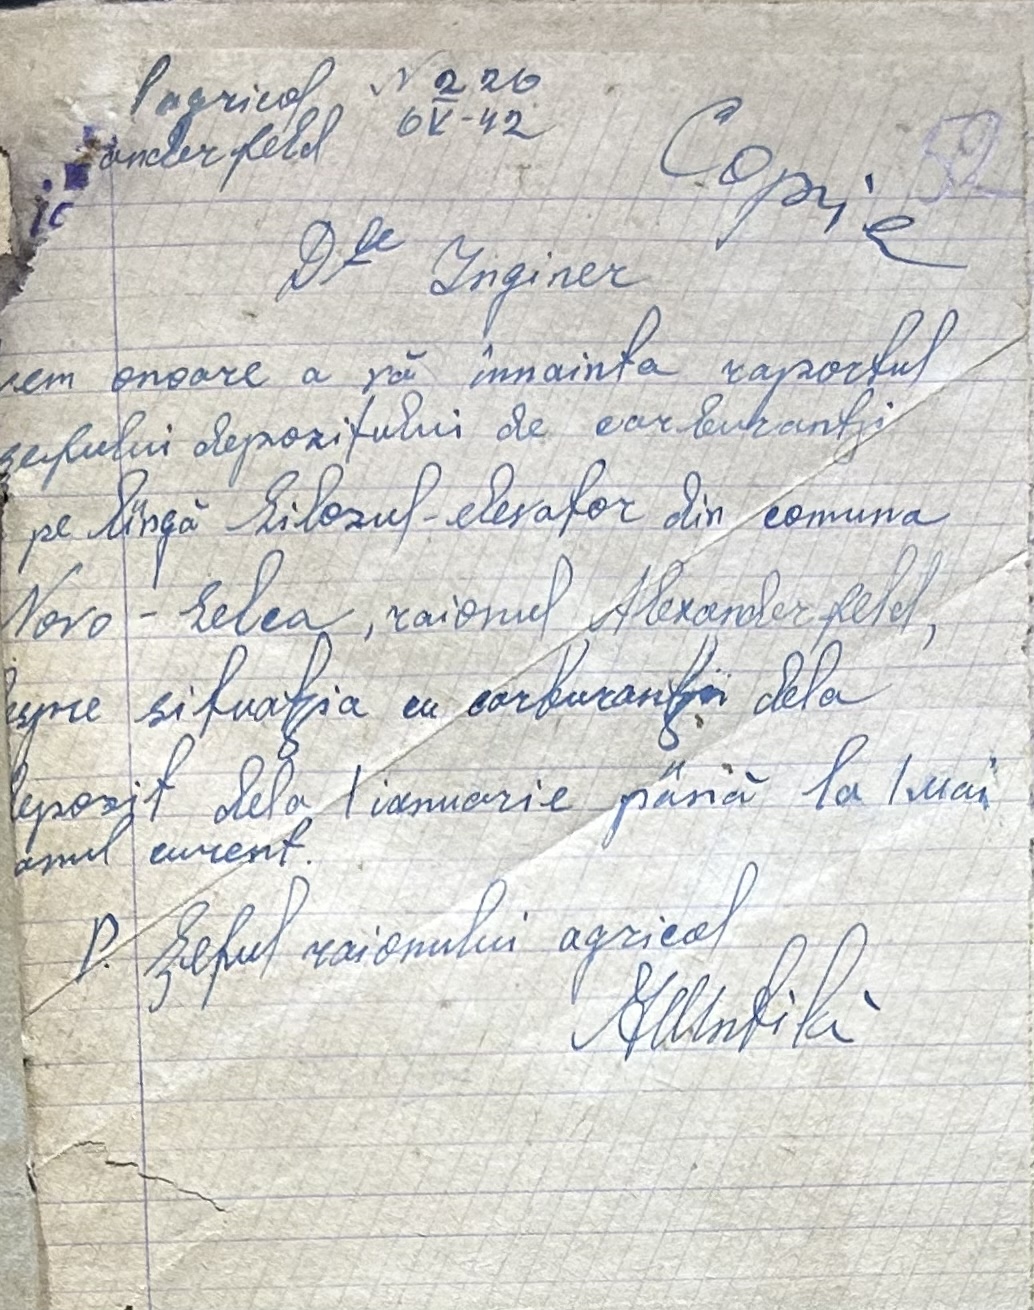 l agricol N 226
anderfeld 6 V-42
Copie
52
Dle Inginer
vem onoare a vă înnainta raportul
șefului depozitului de carburanți
pe lîngă Silozul-elevator din comuna
Novo-Selca, raionul Alexanderfeld,
espre situația cu carburanți dela
depozit dela 1 ianuarie până la 1 Mai
anul curent.
P. Șeful raionului agricol